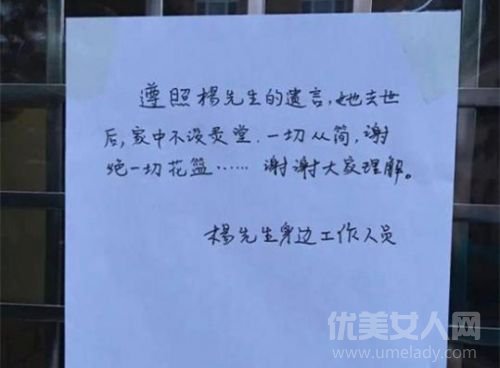 遵照杨先生的遗言,她去世
后,家中不设灵堂.一切从简,谢
绝一切花篮……谢谢大家理解。
杨先生身边工作人员
优美女人网
www.umelady.com